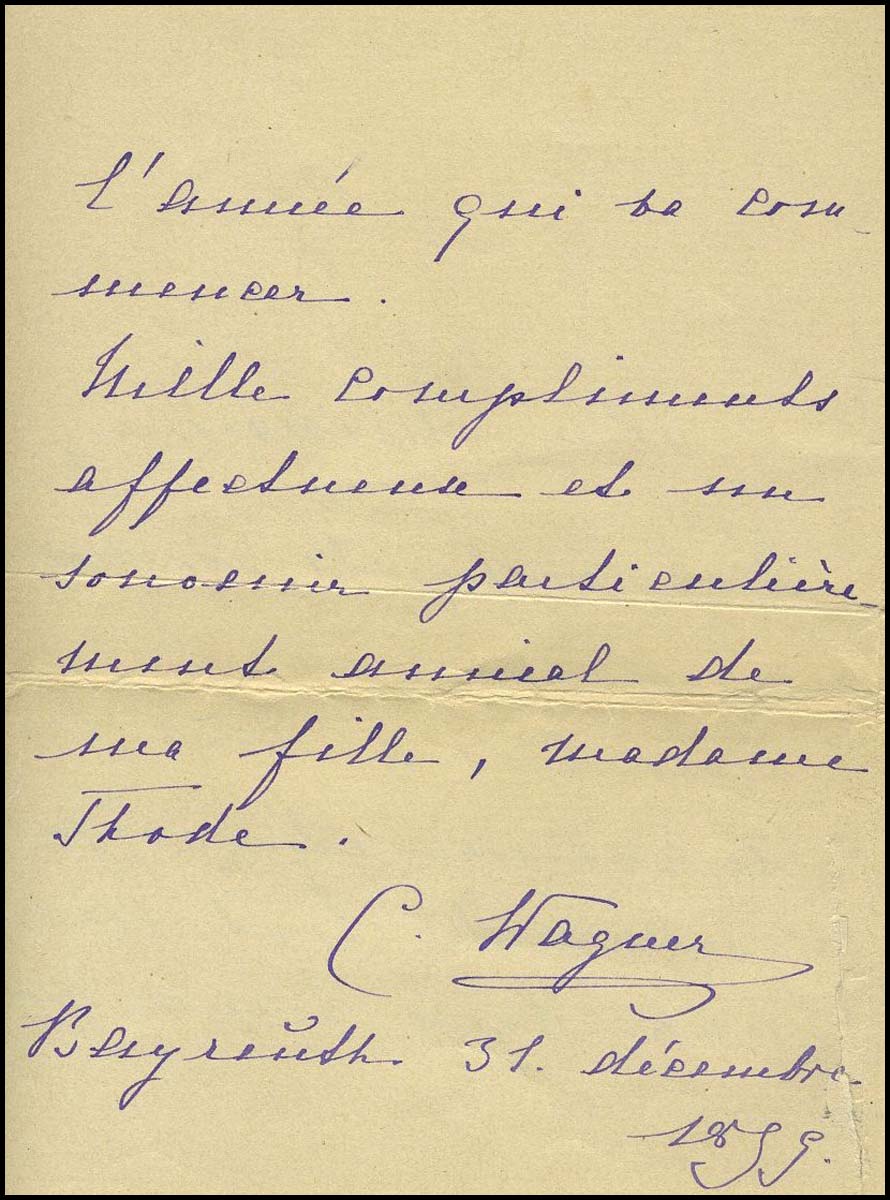 l'année qui va com-
mencer.
Mille compliments
affectueux et un
souvenir particulière-
ment amical de
ma fille, madame
Thode.
C. Wagner
Bayreŭth 31. décembre
1899.